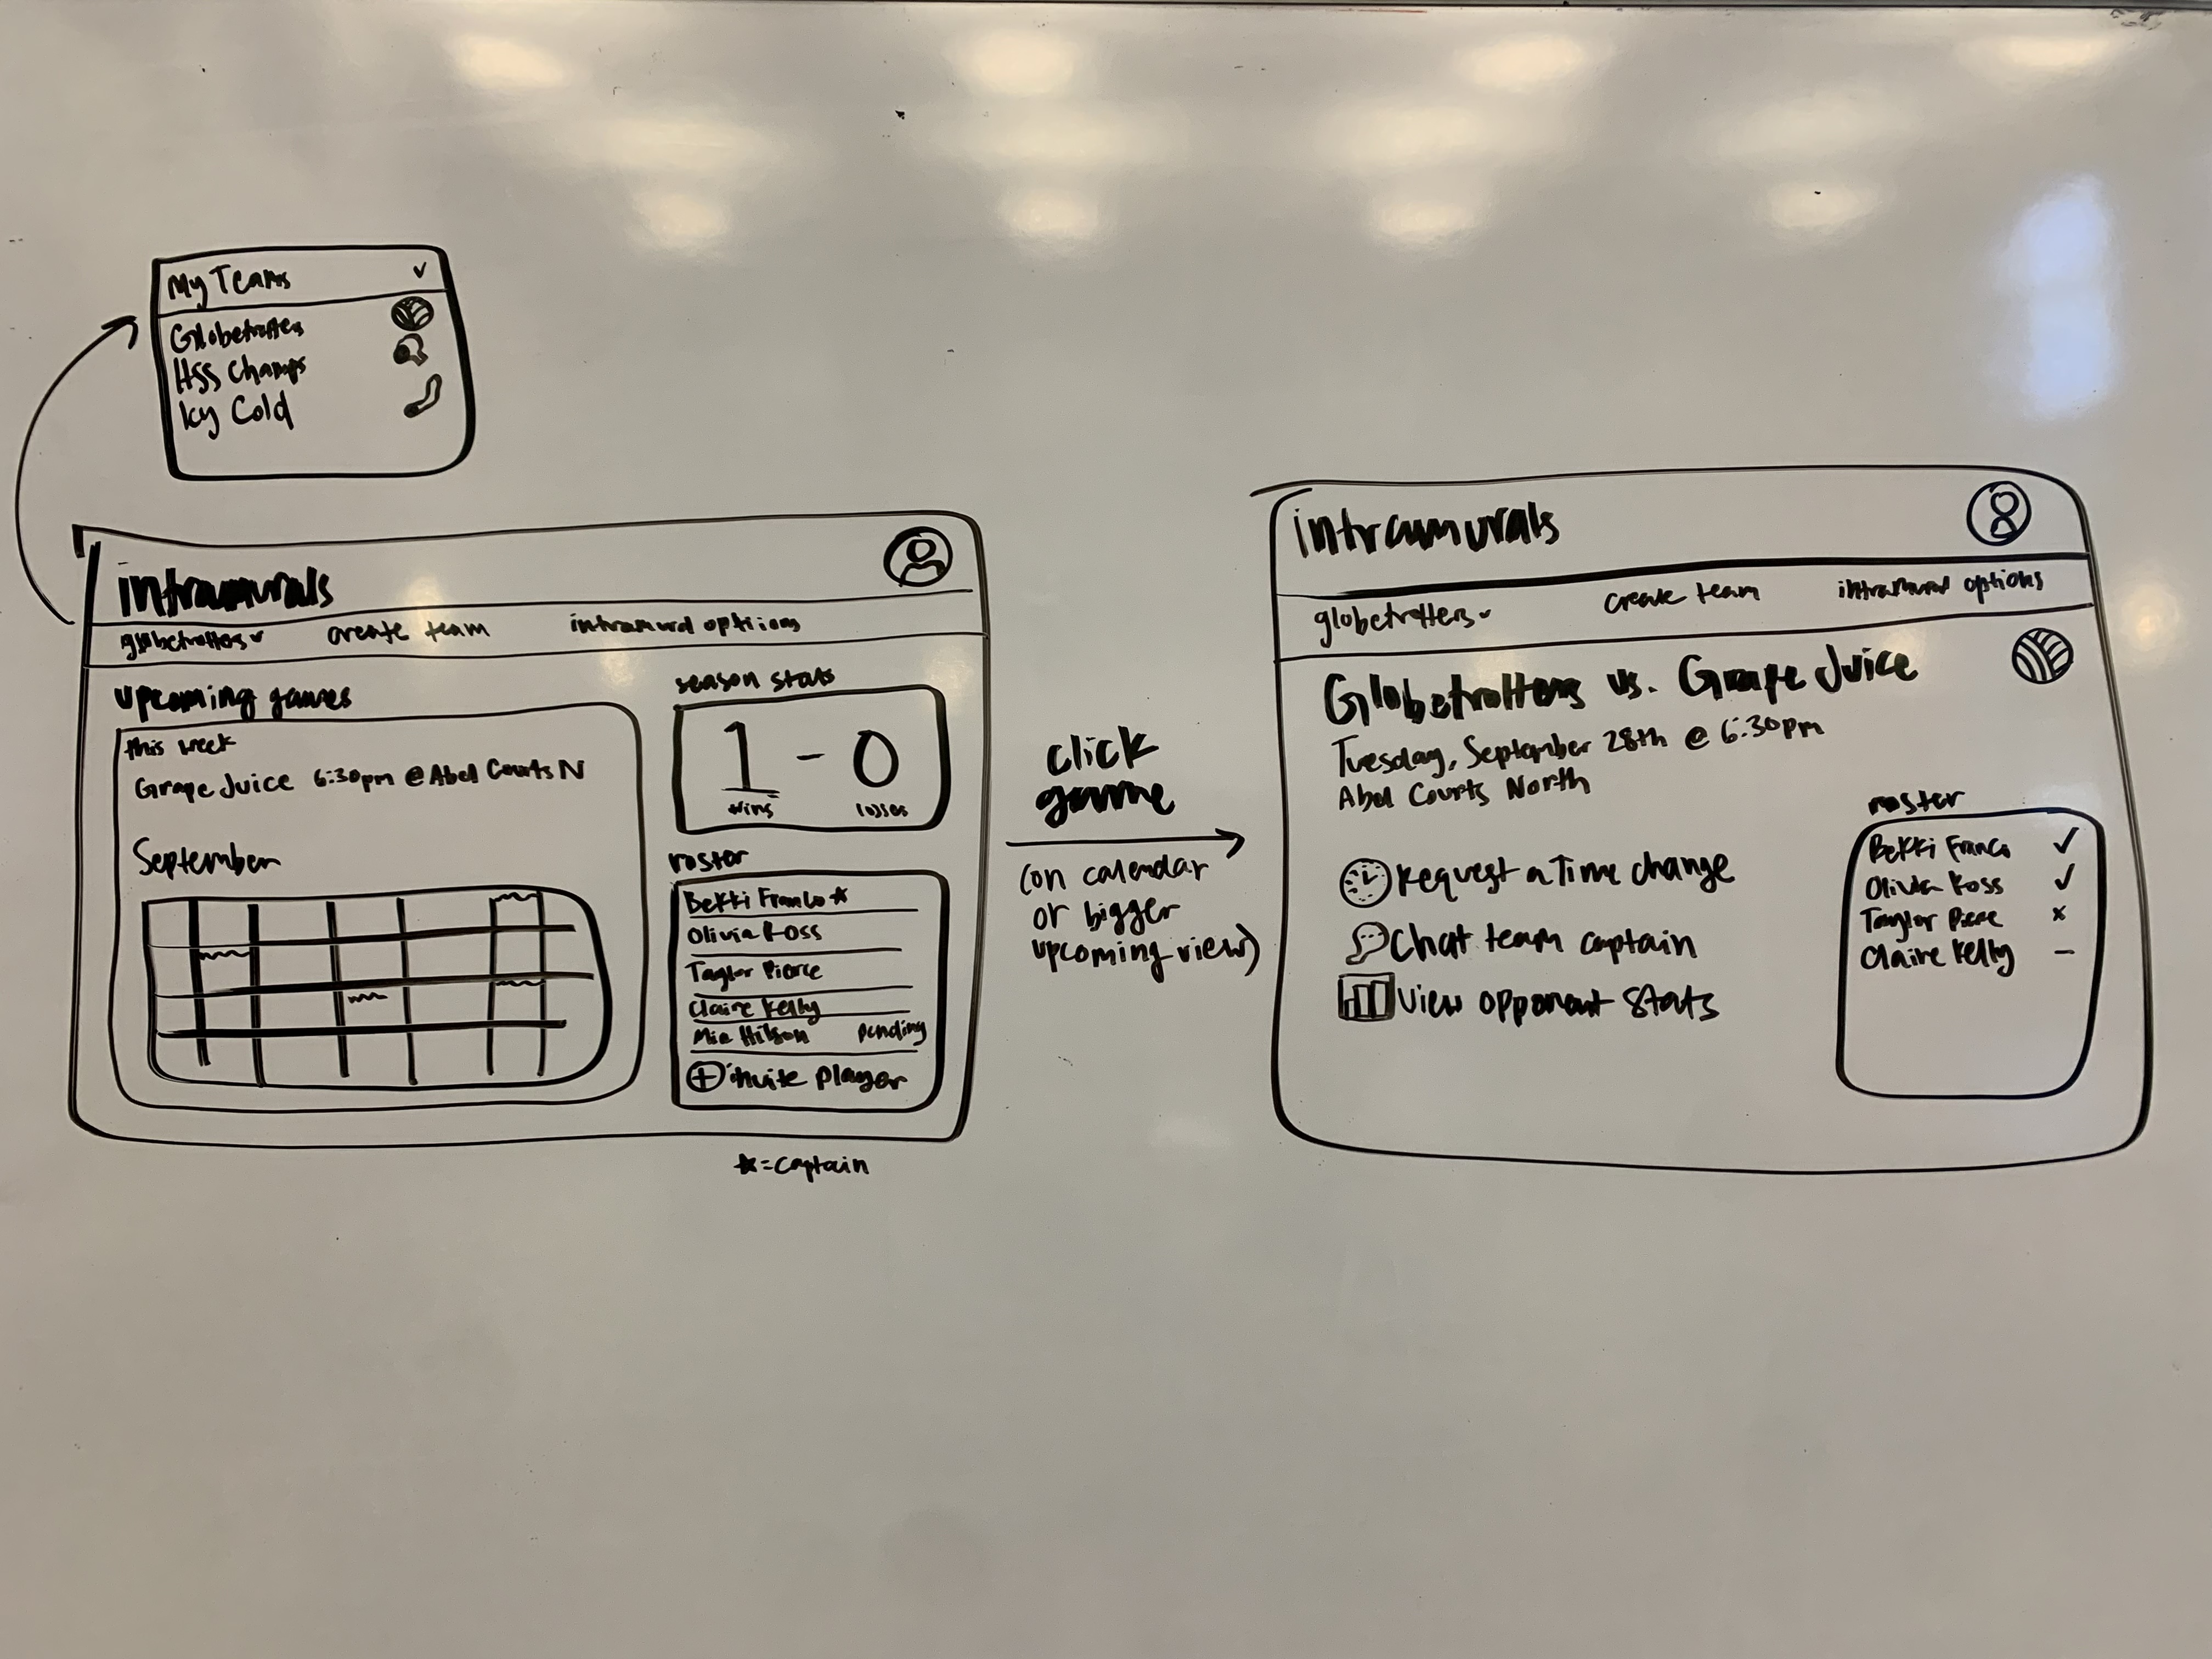 My Teams
Globetrotters
HSS Champs
Icy Cold
intramurals
globetrotters
create team
intramural optiions
upcoming games
this week
Grape Juice 6:30pm @ Abel Courts N
September
season stats
1 - 0
wins losses
roster
Bekki Franco ★
Olivia Ross
Taylor Pierce
Claire Kelly
Mia Hilson pending
+ invite player
★ = captain
click
game
(on calendar
or bigger
upcoming view)
intramurals
globetrotters
create team
intramural options
Globetrotters vs. Grape Juice
Tuesday, September 28th @ 6:30pm
Abel Courts North
Request a Time change
Chat team captain
View opponent Stats
roster
Bekki Franco ✓
Olivia Ross ✓
Taylor Pierce x
Claire Kelly –